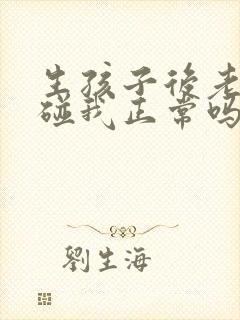 生孩子後老
碰我正常吗
劉生海